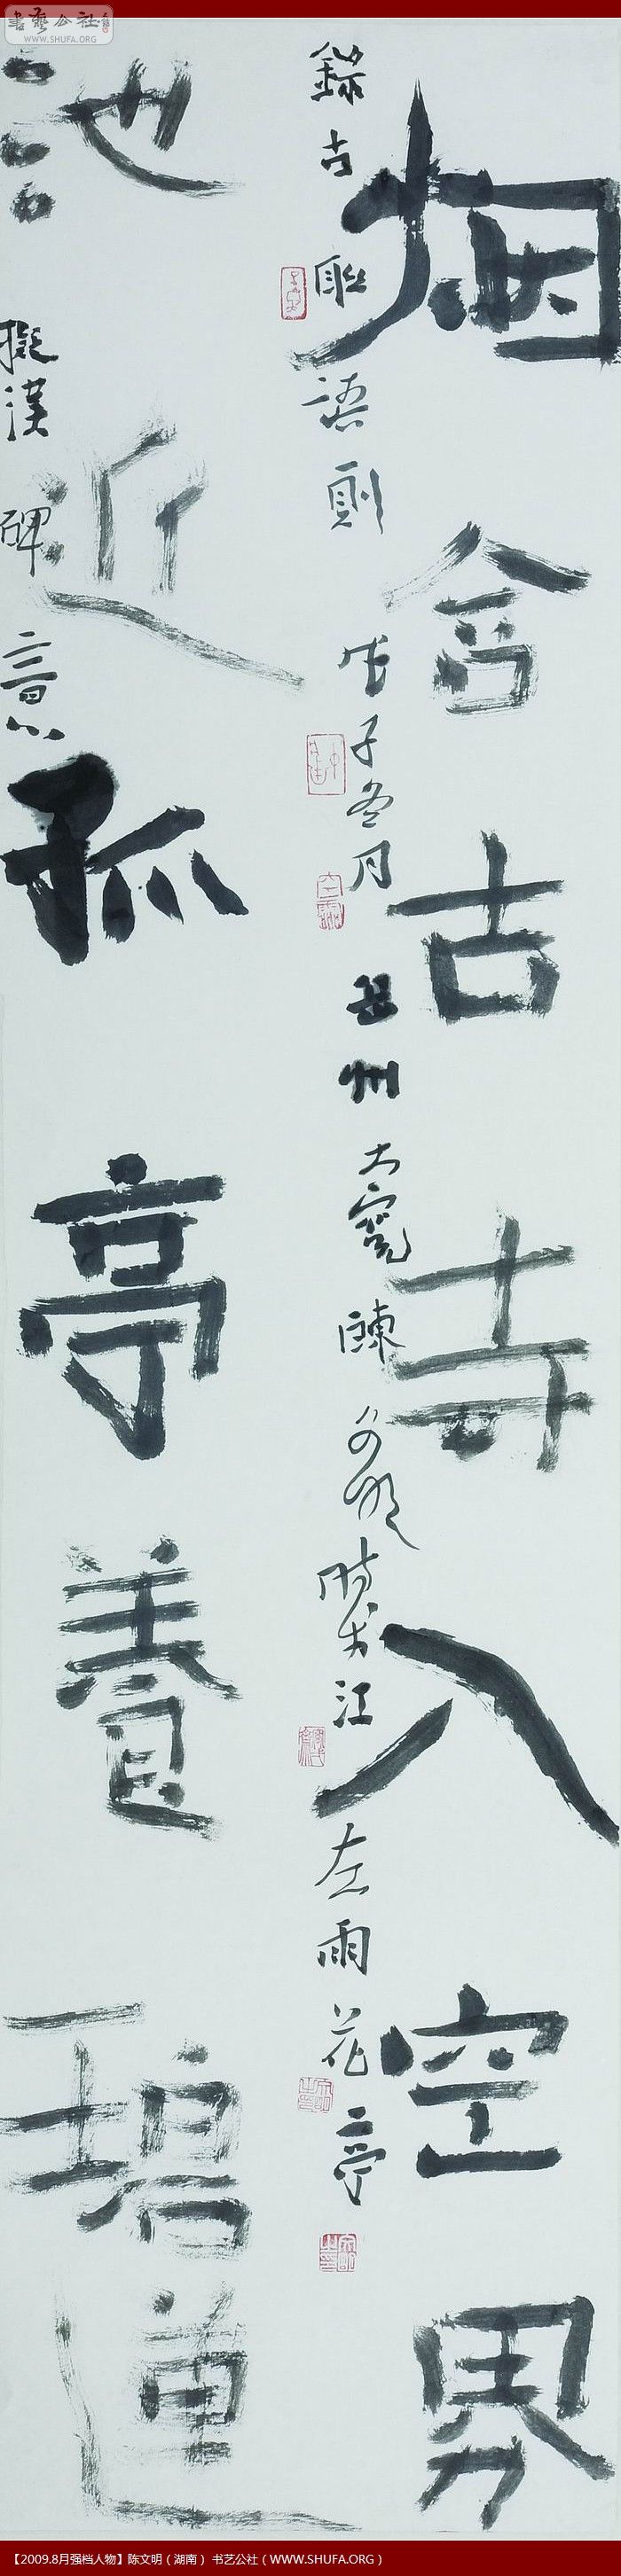 書藝公社
WWW.SHUFA.ORG
烟含古寺入空界
錄古聯語則 戊子冬月 岳州大寬陳文明 江左雨花亭
池近孤亭養碧蓮
擬漢碑意
【2009.8月强档人物】陈文明（湖南） 书艺公社（WWW.SHUFA.ORG）